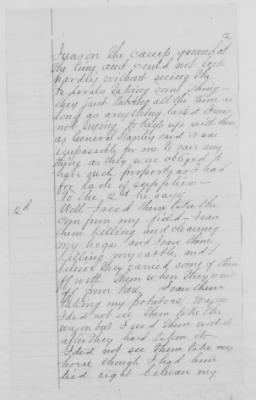 2
I was on the camp ground at
the time and could not look
hardly without seeing the
Federals taking something
they just taking all the time as
long as anything lasted I was
not trying to keep up with them
as General Stanley said it was
impossible for me to save any
thing as they were obliged to
have such property as I had
for lack of supplies
To the 2nd he says
2d Well I seed them take the
corn from my field I saw
them killing and cleaning
my hogs and I saw them
killing my cattle, and I
believe they carried some of them
off with them when they
I saw them
taking my potatoes
I did not see them take the
wagon but I seed them with it
after they had taken it
I did not see them take my
horse though I had him
tied right between my